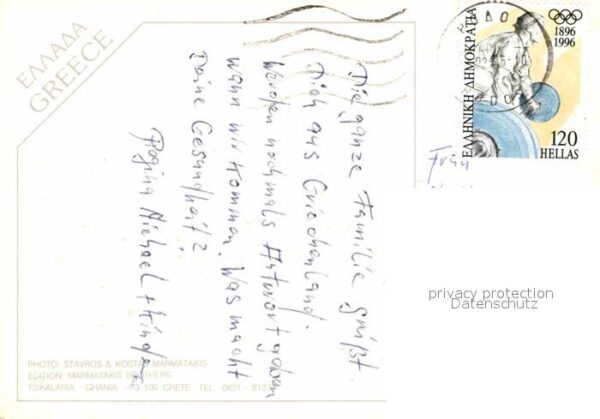 ΕΛΛΑΔΑ
GREECE
Die ganze Familie grüßt
Dich aus Griechenland.
Werden nochmals Antwort geben
wann wir kommen. Was macht
Deine Gesundheit?
Regina Michael + Kinder
PHOTO: STAVROS & KOSTAS MARMATAKIS
EDITION: MARMATAKIS BROTHERS
TSIKALARIA - CHANIA - 73 100 CRETE TEL. 0821 -
ΕΛΛΗΝΙΚΗ ΔΗΜΟΚΡΑΤΙΑ
1896
1996
120
HELLAS
Frau
privacy protection
Datenschutz